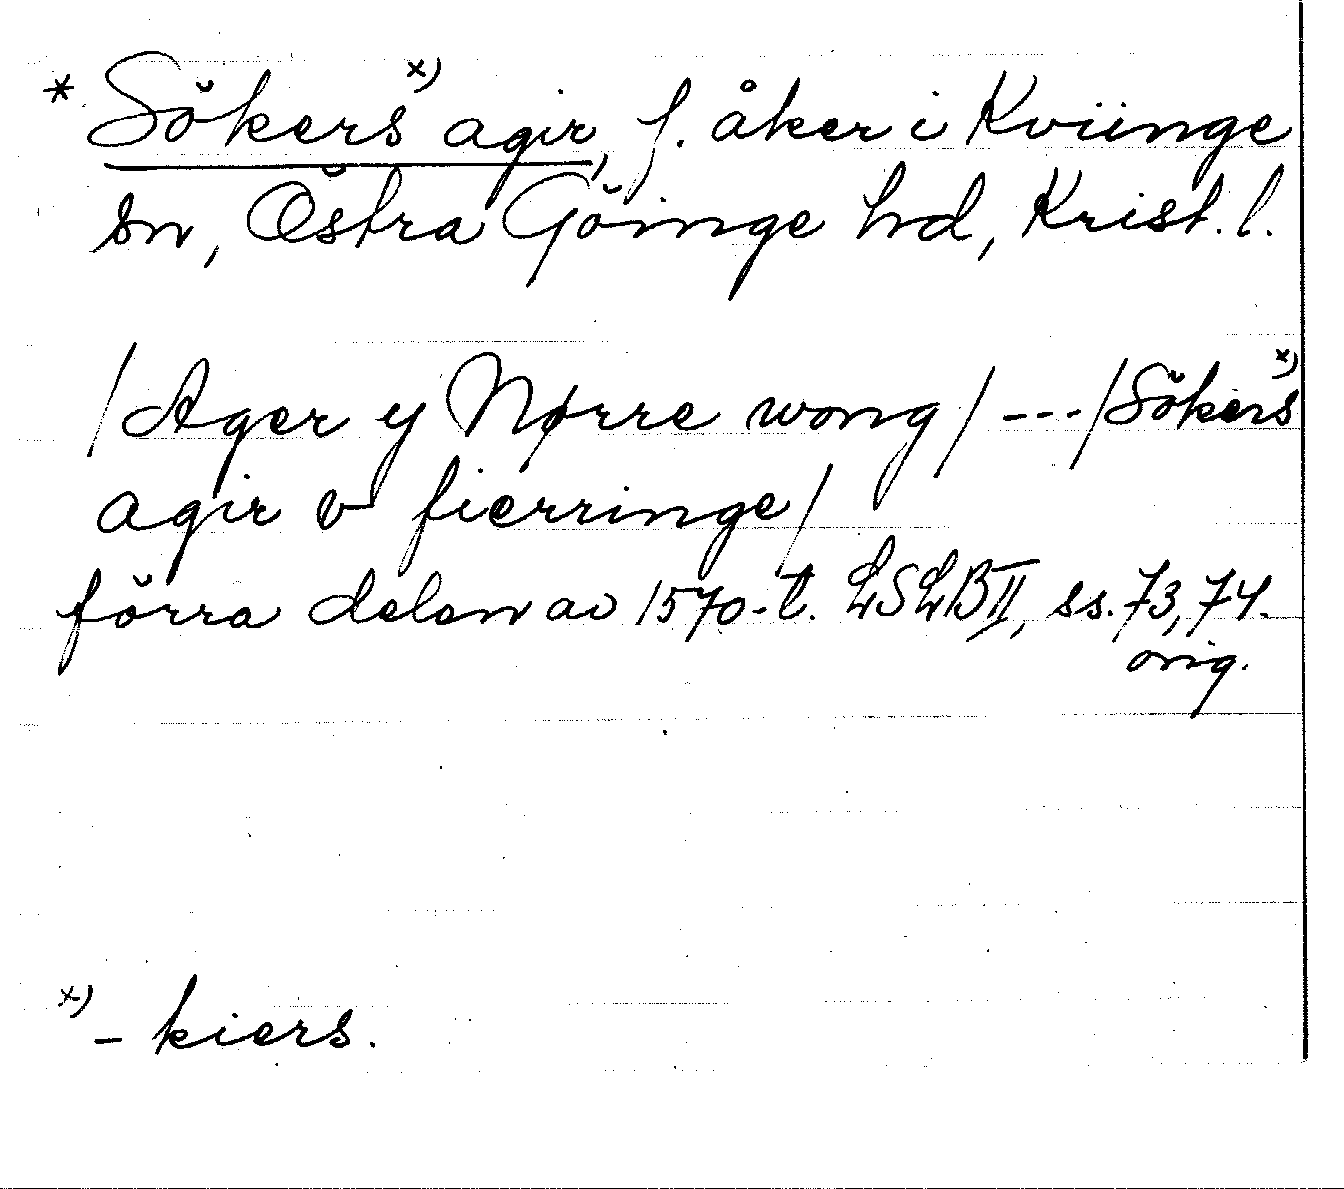 * Sökers x) agir, f. åker i Kviinge
sn, Östra Göinge hd, Krist. l.
/Ager y Nørre wong/ --- /Sökers x)
agir v fierringe/
förra delen av 1570-t. LSLB II, ss. 73, 74.
orig.
x) - kiers.